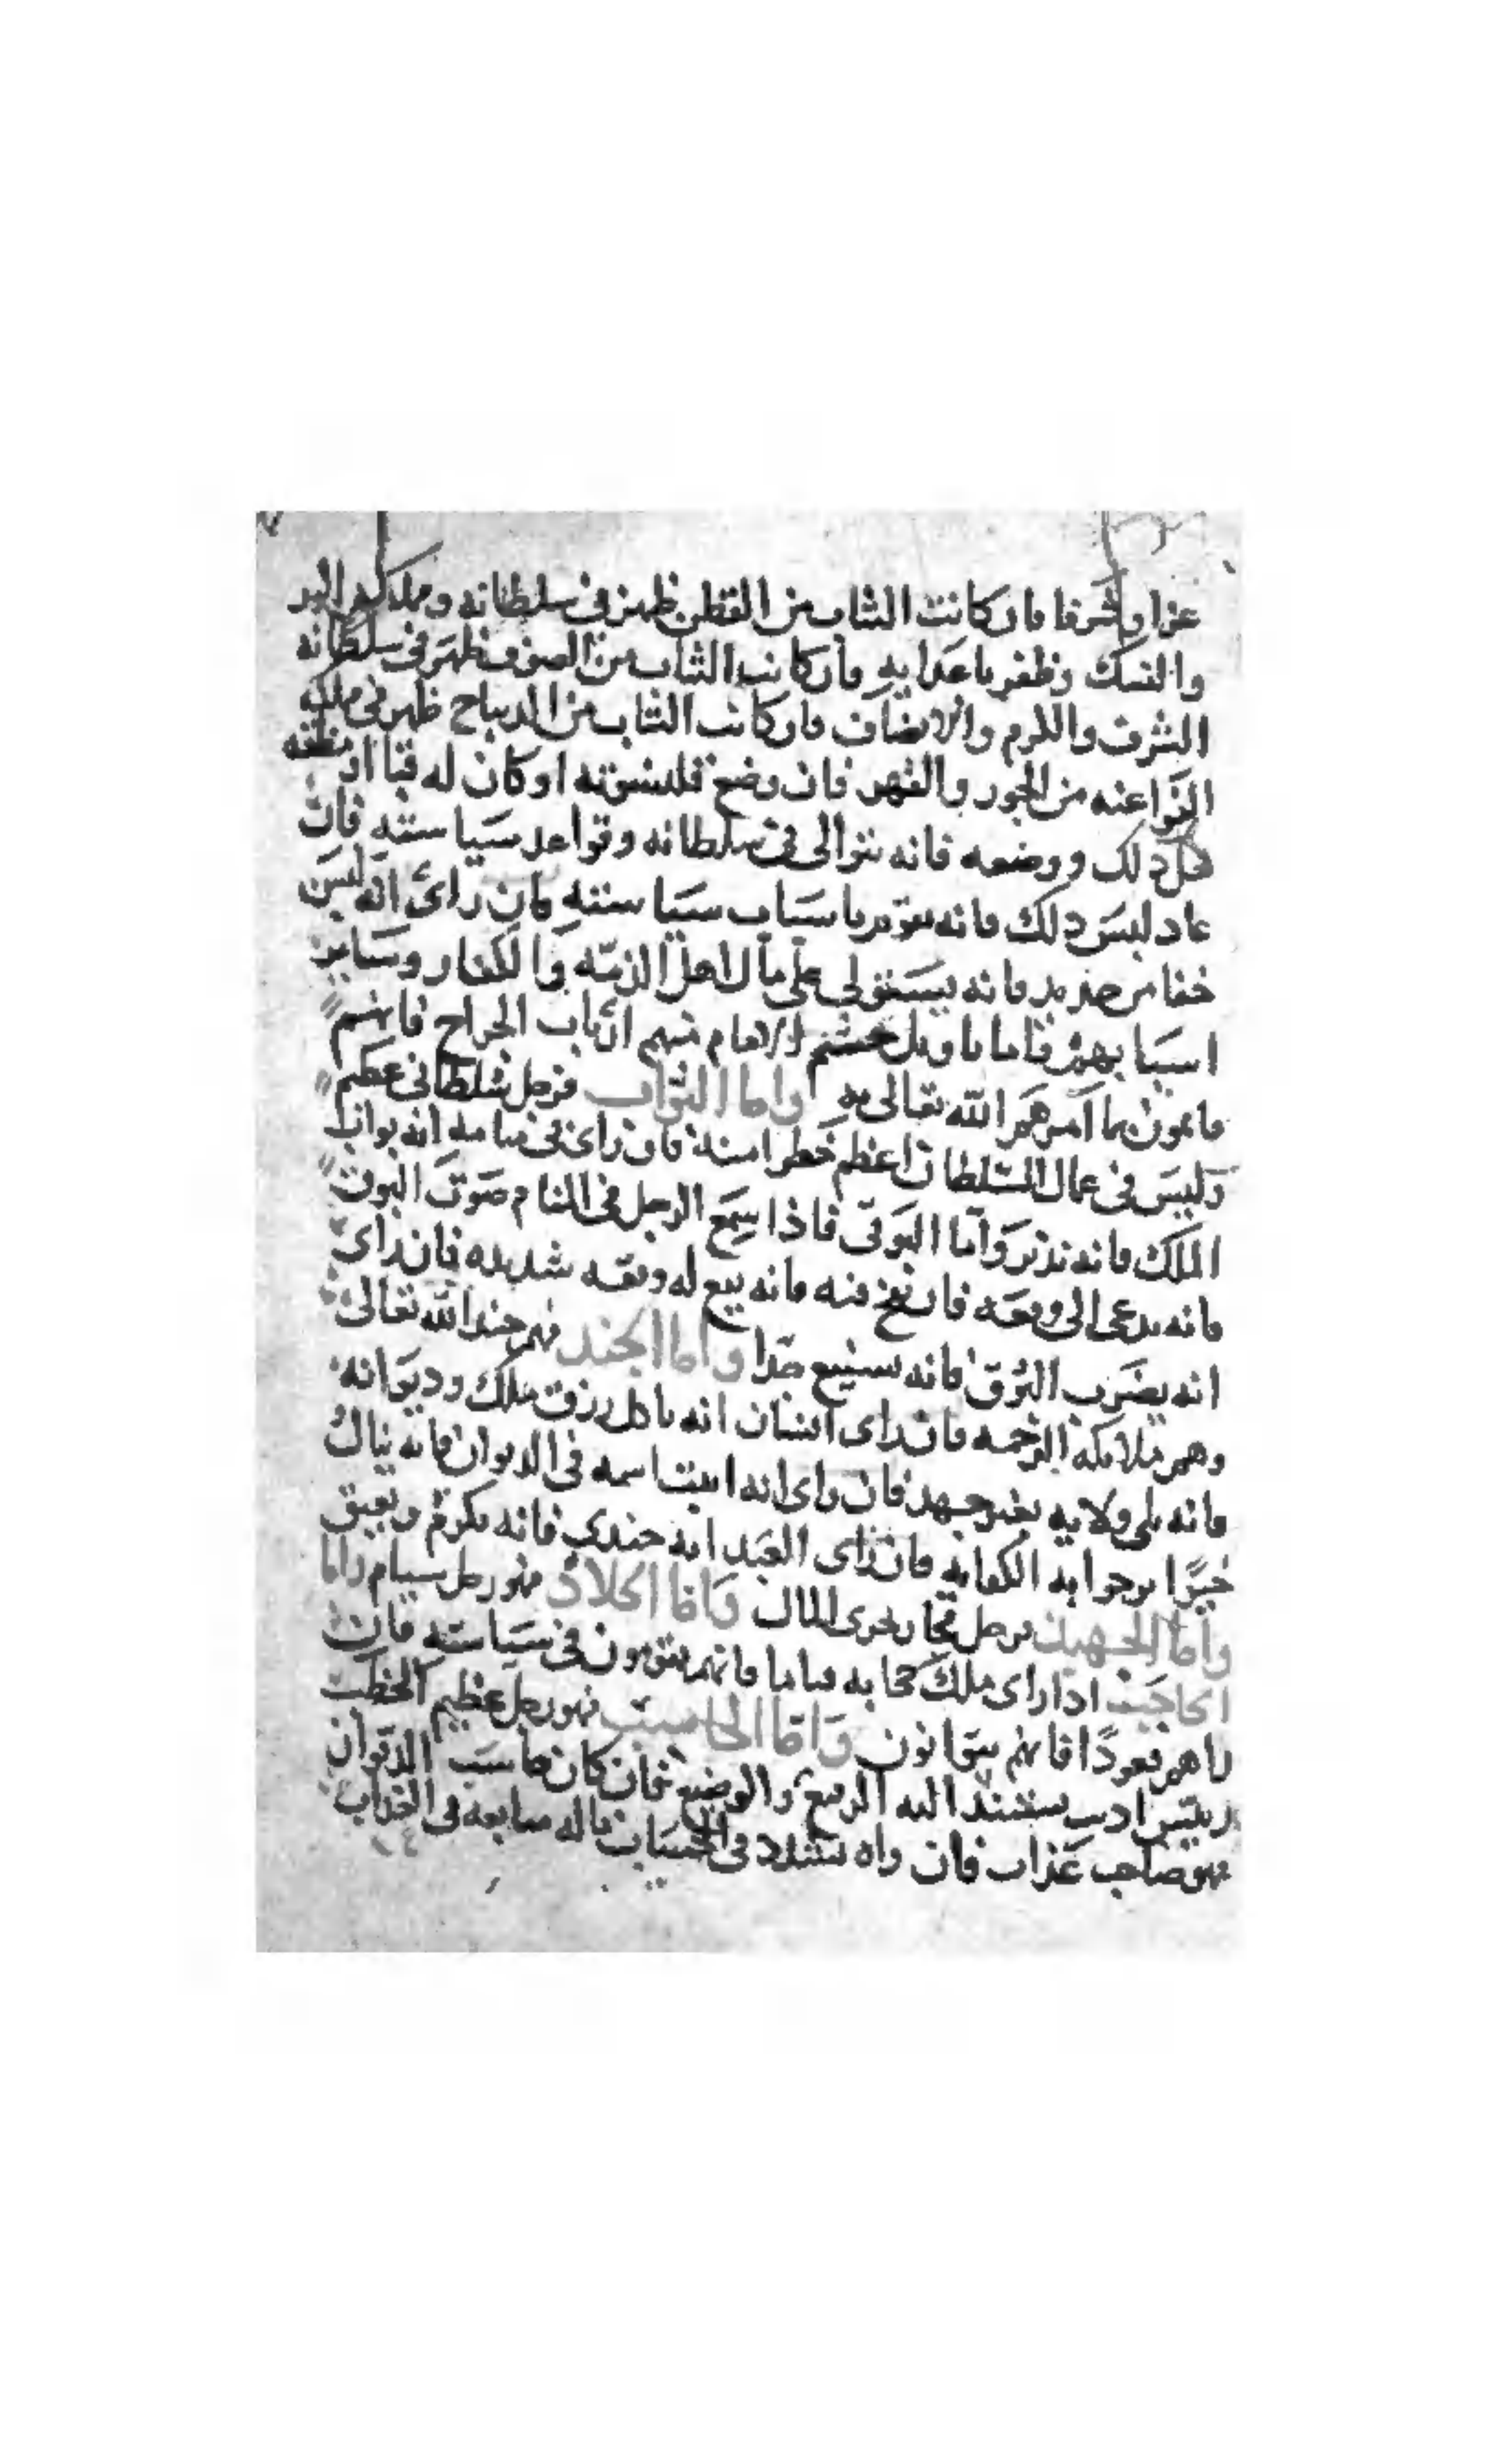 عزا وشرفا فان كانت الثياب من القطن ظهر في سلطانه وملكه البر
والنسك وظفر باعدايه وان كانت الثياب من الصوف ظهر في سلطانه
الشرف والكرم والانصاف فان كانت الثياب من الديباج ظهر في ملكه
الفراعنه من الجور والقهر فان وضع قلنسوته او كان له قبا او منطقه
فحل ذلك ووضعه فانه يتوانى في سلطانه وقواعد سياسته فان
عاد لبس ذلك فانه يقوم باسباب سياسته فان راى انه لبس
خفا من حديد فانه يستولي على مال اهل الذمه والكفار وساير
اسبابهم فاما تاويل حشم الامام منهم ارباب الجراح فانهم
قايمون بما امرهم الله تعالى به واما البواب فرجل سلطاني عظيم
وليس في عمال السلطان اعظم خطرا منه فان راى في منامه انه بواب
الملك فانه نذير واما البوق فاذا سمع الرجل في المنام صوت البوق
فانه يدعى الى وقعه فان نفخ فيه فانه يقع له وقعه شديده فان راى
انه يضرب البوق فانه سيذيع خبرا واما الجند فهم جند الله تعالى
وهم ملايكه الرحمه فان راى انسان انه ياكل رزق ملك وديوانه
فانه يلي ولايه بغير جهد فان راى انه اثبت اسمه في الديوان فانه ينال
خيرا يرجوا به الكفايه فان راى العبد انه جندي فانه يكرم ويعتق
واما الجهبذ فرجل تجار يحوى المال واما الجلاد فهو رجل سبام واما
الحاجب اذا راى ملك حجابه قياما فانهم يقومون في سياسته فان
راهم قعودا فانهم يتوانون واما الحاسب فهو رجل عظيم الخطب
رييس ادب يستند اليه الرفيع والوضيع فان كان محاسب الديوان
فهو صاحب عذاب فان راه يتشدد في الحساب فانه يتابعه في العذاب